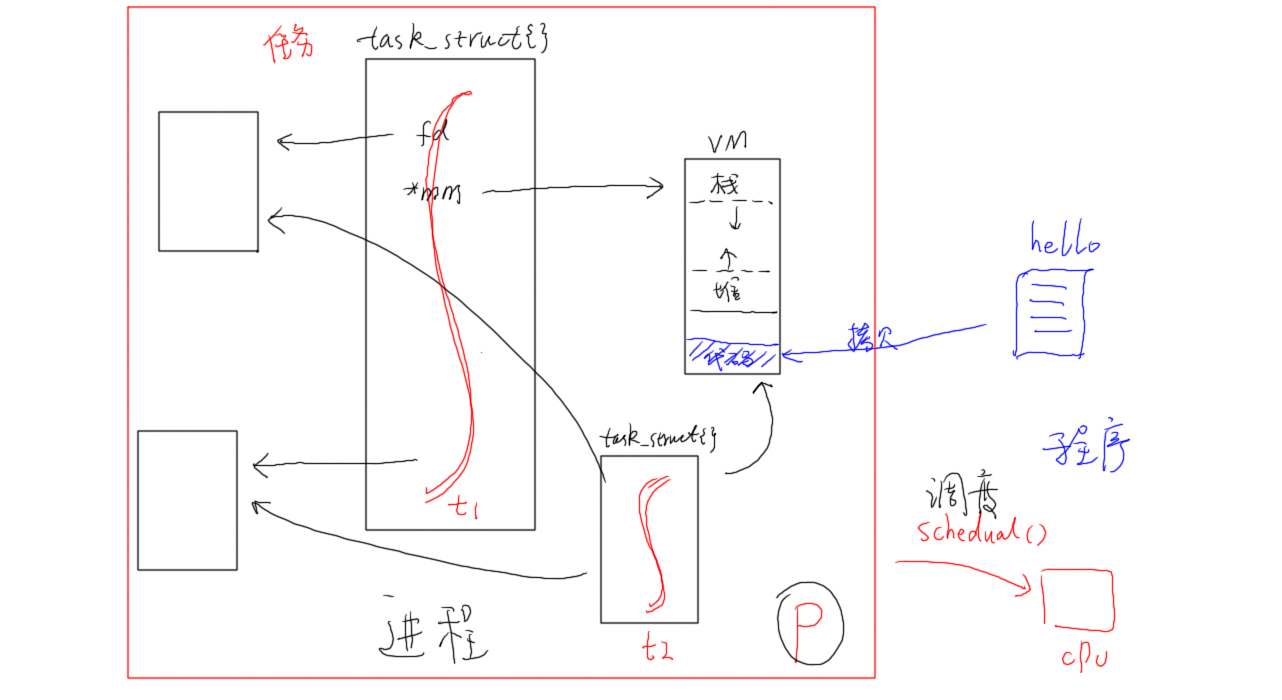 任务
task_struct{}
fd
*mm
t1
VM
栈
堆
代码
拷贝
hello
程序
task_struct{}
t2
进程
P
调度
schedual()
cpu